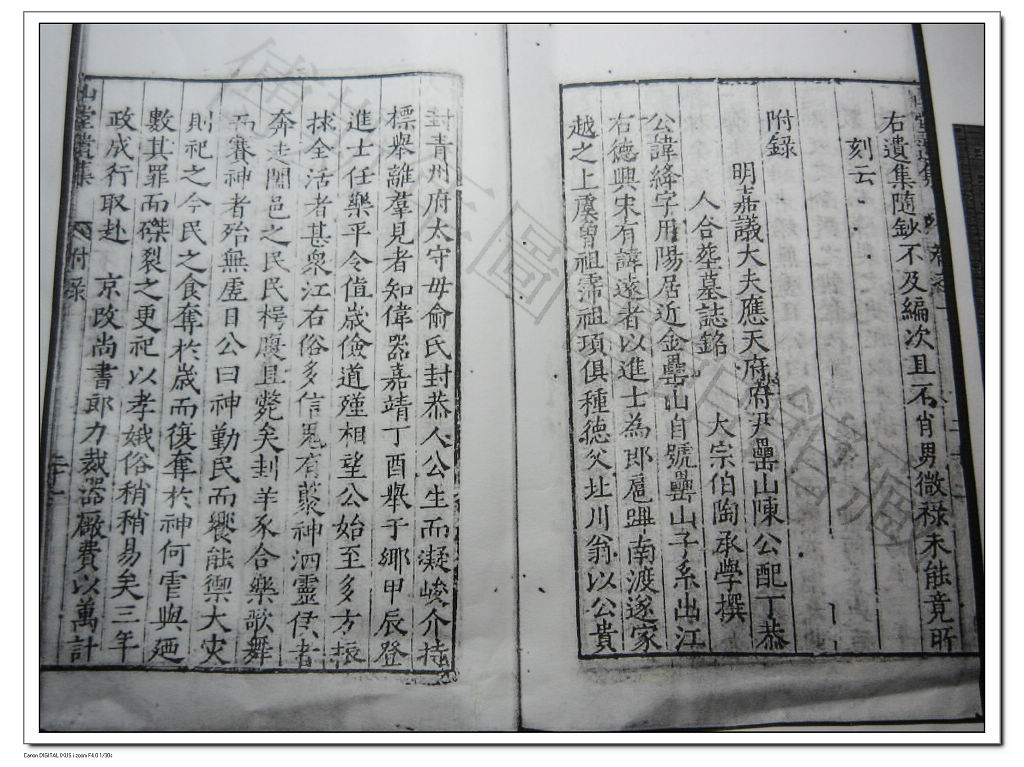 右遺集隨鈔不及編次且不肖男微祿未能竟所
刻云
附錄
明嘉議大夫應天府府尹罍山陳公配丁恭
人合塟墓誌銘 大宗伯陶承學撰
公諱絳字用陽居近金罍山自號罍山子系出江
右德興宋有諱遂者以進士為郎扈蹕南渡遂家
越之上虞曾祖霈祖頊俱種德父址川翁以公貴
封青州府太守毋俞氏封恭人公生而凝峻介持
標舉離羣見者知偉器嘉靖丁酉舉于鄉甲辰登
進士任樂平令值歲儉道殣相望公始至多方振
救全活者甚衆江右俗多信鬼有蔡神泗靈侯者
奔走闔邑之民民枵腹且斃矣刲羊豕合樂歌舞
而賽神者殆無虛日公曰神勤民而饗能禦大灾
則祀之今民之食奪於歲而復奪於神何霅與廼
數其罪而磔裂之更祀以孝娥俗稍稍易矣三年
政成行取赴 京改尚書郎力裁器厰費以萬計
山堂遺集
附錄
Canon DIGITAL IXUS i zoom F4.0 1/30s